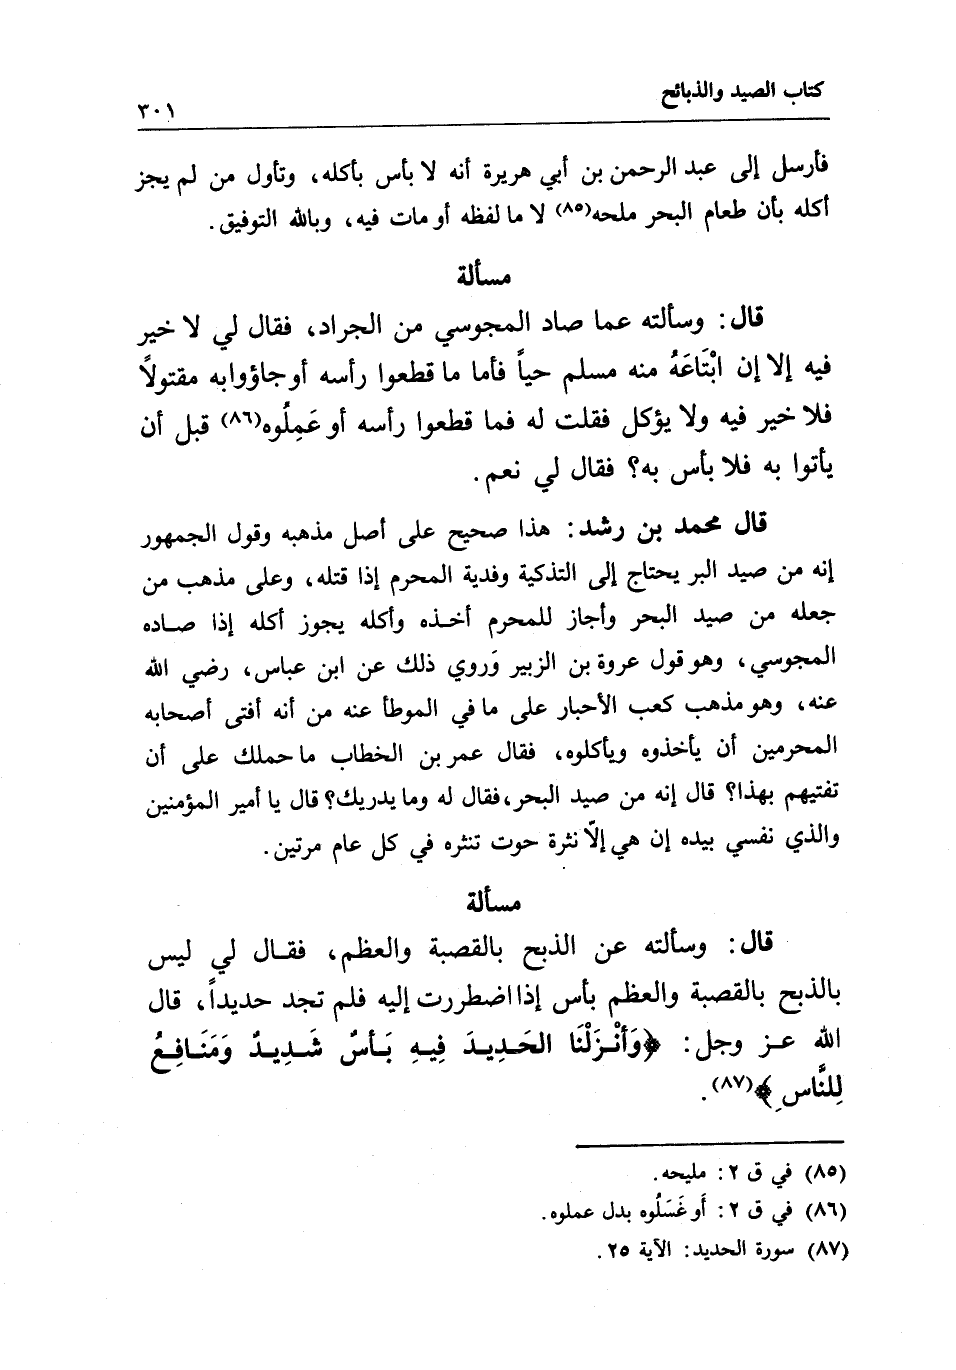 كتاب الصيد والذبائح
٣٠١
فأرسل إلى عبد الرحمن بن أبي هريرة أنه لا بأس بأكله، وتأول من لم يجز
أكله بأن طعام البحر ملحه(٨٥) لا ما لفظه أو مات فيه، وبالله التوفيق.
مسألة
قال: وسألته عما صاد المجوسي من الجراد، فقال لي لا خير
فيه إلا إن ابْتَاعَهُ منه مسلم حياً فأما ما قطعوا رأسه أو جاؤوا به مقتولاً
فلا خير فيه ولا يؤكل فقلت له فما قطعوا رأسه أو عَمِلُوه(٨٦) قبل أن
يأتوا به فلا بأس به؟ فقال لي نعم.
قال محمد بن رشد: هذا صحيح على أصل مذهبه وقول الجمهور
إنه من صيد البر يحتاج إلى التذكية وفدية المحرم إذا قتله، وعلى مذهب من
جعله من صيد البحر وأجاز للمحرم أخـذه وأكله يجوز أكله إذا صـاده
المجوسي، وهو قول عروة بن الزبير وَروي ذلك عن ابن عباس، رضي الله
عنه، وهو مذهب كعب الأحبار على ما في الموطأ عنه من أنه أفتى أصحابه
المحرمين أن يأخذوه ويأكلوه، فقال عمر بن الخطاب ما حملك على أن
تفتيهم بهذا؟ قال إنه من صيد البحر، فقال له وما يدريك؟ قال يا أمير المؤمنين
والذي نفسي بيده إن هي إلّا نثرة حوت تنثره في كل عام مرتين.
مسألة
قال: وسألته عن الذبح بالقصبة والعظم، فقـال لي ليس
بالذبح بالقصبة والعظم بأس إذا اضطررت إليه فلم تجد حديداً، قال
الله عـز وجل: ﴿وَأَنْـزَلْنَا الحَـدِيـدَ فِيـهِ بَـأْسٌ شَـدِيـدٌ وَمَنَـافِـعُ
لِلنَّاسِ﴾(٨٧).
(٨٥) في ق ٢: مليحه.
(٨٦) في ق ٢: أَو غَسَلُوه بدل عملوه.
(٨٧) سورة الحديد: الآية ٢٥.